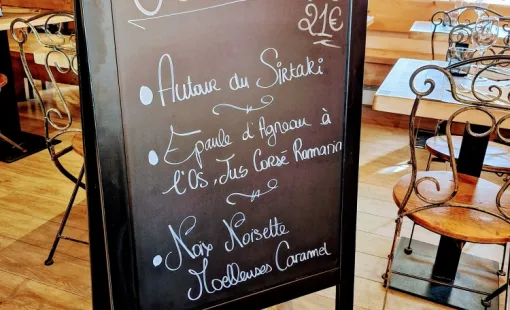 21€
• Autour du Sirtaki
• Epaule d'Agneau à
l'Os, Jus Corsé Romarin
• Noix Noisette
Moelleuses Caramel